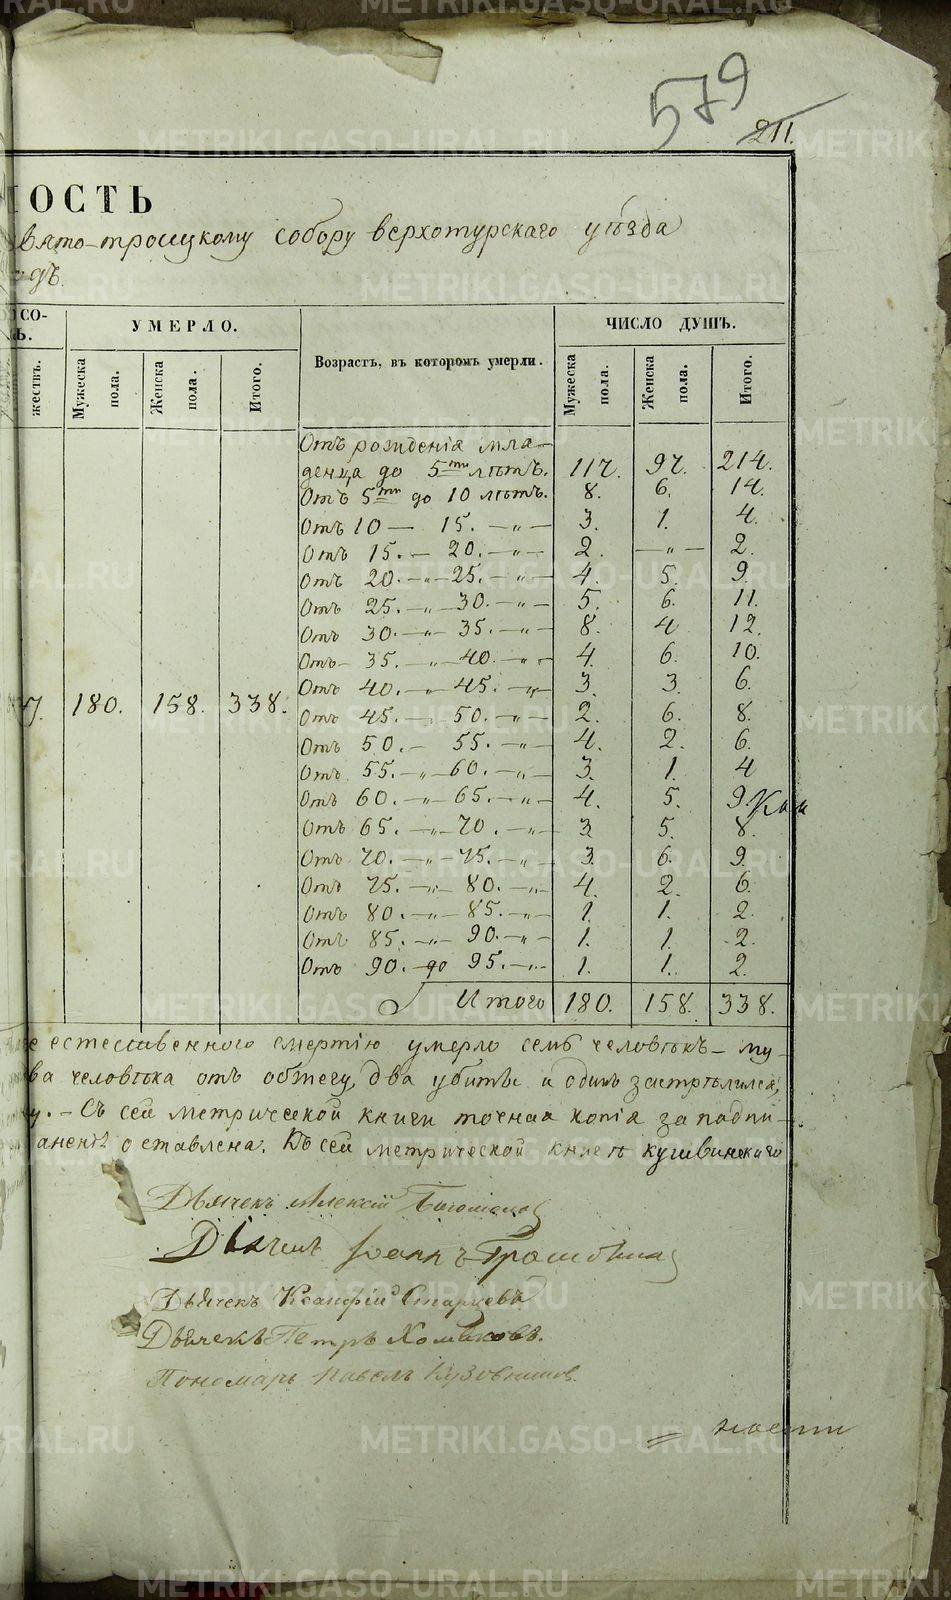 579
211.
ОСТЬ
вято-троицкому собору верхотурскаго уѣзда
одъ.
СО-
Ъ.
УМЕРЛО.
Возрастъ, въ которомъ умерли.
ЧИСЛО ДУШЪ.
жествъ.
Мужеска пола.
Женска пола.
Итого.
Мужеска пола.
Женска пола.
Итого.
Отъ рожденія мла-
денца до 5ти лѣтъ. 117. 97. 214.
Отъ 5ти до 10 лѣтъ. 8. 6. 14.
Отъ 10 — 15. —„— 3. 1. 4.
Отъ 15. — 20. —„— 2. —„— 2.
Отъ 20. —„— 25. —„— 4. 5. 9.
Отъ 25. —„— 30. —„— 5. 6. 11.
Отъ 30. —„— 35. —„— 8. 4 12.
Отъ 35. —„— 40. —„— 4. 6. 10.
Отъ 40. —„— 45. —„— 3. 3. 6.
7. 180. 158. 338.
Отъ 45. —„— 50. —„— 2. 6. 8.
Отъ 50. — 55. —„— 4. 2. 6.
Отъ 55. —„— 60. —„— 3. 1. 4
Отъ 60. —„— 65. —„— 4. 5. 9
Отъ 65. —„— 70. —„— 3 5. 8.
Отъ 70. —„— 75. —„— 3. 6. 9.
Отъ 75. —„— 80. —„— 4. 2. 6.
Отъ 80. —„— 85. —„— 1. 1. 2.
Отъ 85. —„— 90. —„— 1. 1. 2.
Отъ 90. до 95. —„— 1. 1. 2.
Итого 180. 158. 338.
е естественного смертію умерло семь человѣкъ — му-
ва человѣка отъ обжегу, два убиты и одинъ застрѣлился,
у. — Съ сей метрической книги точная копія за подпи-
оставлена. Къ сей метрической книгѣ кушвинскаго
Дьячекъ Алексій Богомолов
Дьячекъ Іоаннъ
Дьячекъ Ксанфій Старцевъ
Дьячекъ Петръ Хомяковъ.
Пономарь Павелъ Кузовников.
METRIKI.GASO-URAL.RU